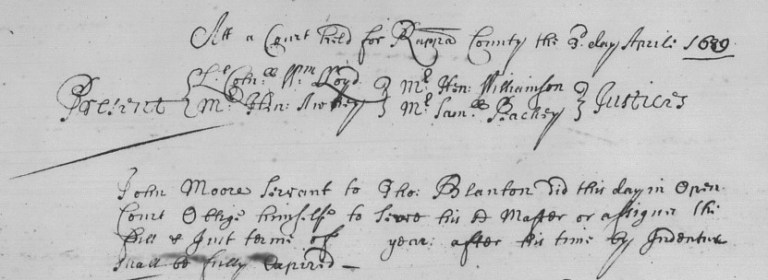 Att a Court held for Rappa County the 3d day April: 1689
Lt Conll Wm Loyd Mr Hen: Williamson
Present Justices
Mr Hen: Mr Samll
John Moore Servant to Tho: Blanton did this day in Open
Court Oblige himselfe to Serve his sd Master or assignes the
full & Just terme of year: after his time by Indenture
shall be fully Expired